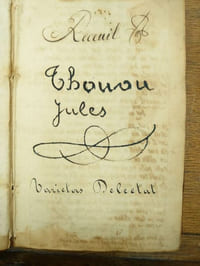 Recueil
Thouou
Jules
Varietas Delectat